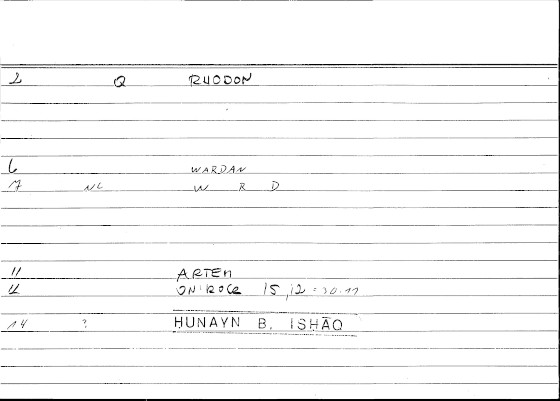 2 Q RHODON
6 WARDAN
7 NL W R D
11 ARTEM
12 ONIROCR 15,12 = 30.17
14 ? HUNAYN B. ISHĀQ